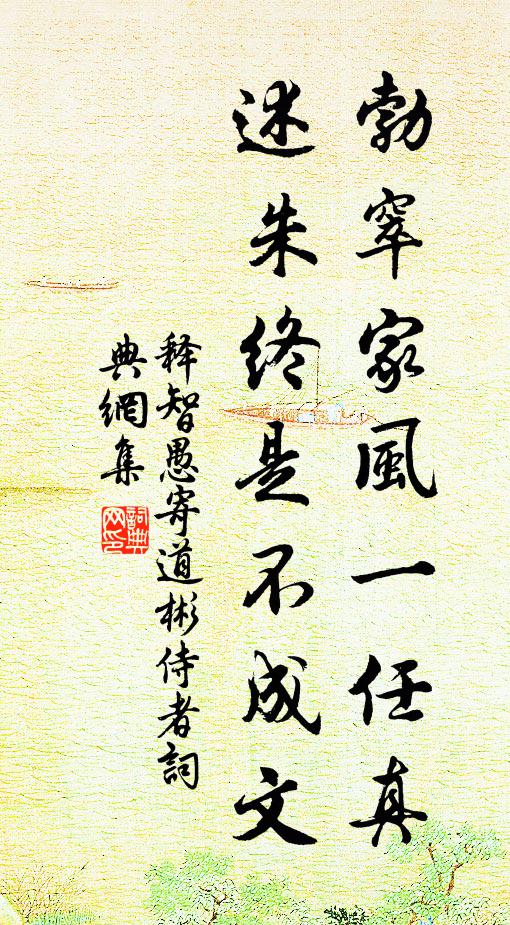 勃窣家風一任真
迷朱终是不成文
释智愚寄道彬侍者詞
典網集
詞典
网印